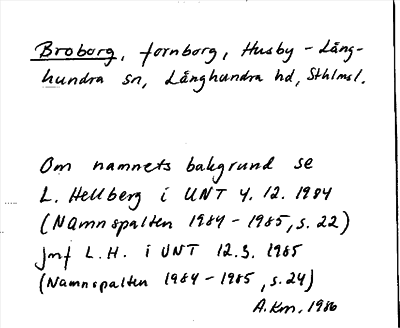 Broborg, fornborg, Husby-Lång-
hundra sn, Långhundra hd, Sthlmsl.
Om namnets bakgrund se
L. Hellberg i UNT 4.12.1984
(Namnspalten 1984-1985, s. 22)
jmf L.H. i UNT 12.3. 1985
(Namnspalten 1984-1985, s. 24)
A.Km. 1986